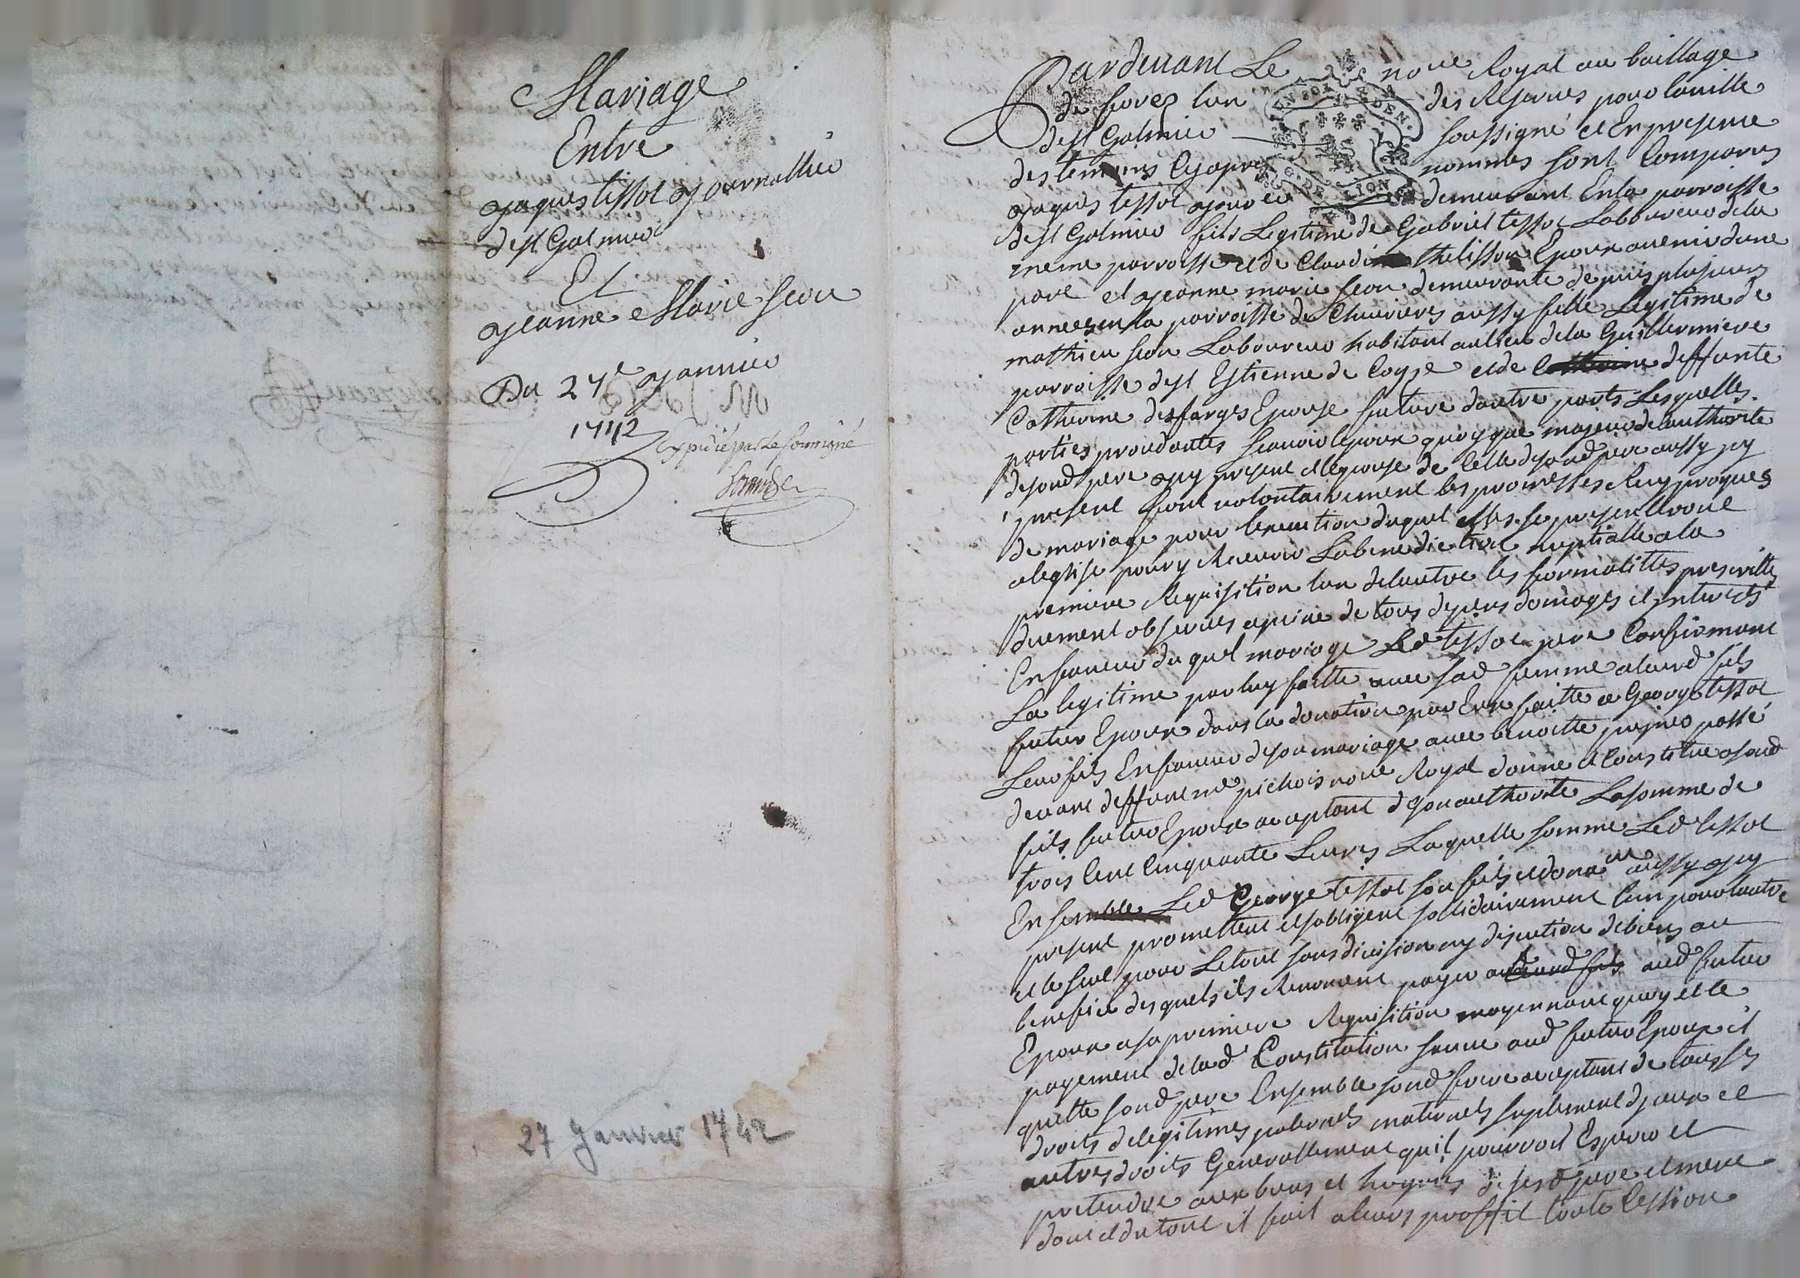 Mariage
Entre
Jaques tissot Journallier
de st Galmier
Et
Jeanne Marie Seon
Du 27e Janvier
1742
expedié par le soussigné
27 Janvier 1742
Pardevant Le nore Royal au bailliage
de forez lun des Reservés pour la ville
de st Galmier soussigné et En presence
des temoins Cyapres nommés sont Comparus
Jaques tissot demeurant En la parroisse
de st Galmier fils Legitime de Gabriel tissot Laboureur de la
meme parroisse et de Claudine thelisson Epoux avenir dune
part et Jeanne marie seon demeurante depuis plusieurs
années en la parroisse de Chevrieres aussy fille Legitime de
mathieu seon Laboureur habitant au lieu de la Guillermiere
parroisse de st Estienne de Coyse et de deffunte
Catherine desfarges Epouse future dautre part Lesquelles
parties procedantes scavoir lepoux quoyque majeur de lauthorité
de sond pere icy present et lepouse de Celle de sond pere aussy icy
present font volontairement les promesses Reciproques
de mariage pour lexecution duquel elles se presenteront
a leglise pour y Recevoir La benediction nuptialle a la
premiere Requisition lun de lautre les formalittés prescrittes
duement observées a peine de tous depens domages et interests
En faveur du quel mariage Led tissot pere Confirmant
La legitime par luy faitte avec sad femme aleurd fils
futur Epoux dans la donation par Eux faitte a George tissot
Leur fils En faveur de son mariage avec benoitte passé
devant deffunt me pichois nore Royal donne et Constitue a sond
fils futur Epoux acceptant de son authorité La somme de
trois Cent Cinquante Livres Laquelle somme Led tissot
Ensemble Led George tissot son fils et donare aussy icy
present promettent et sobligent solidairement lun pour lautre
et le seul pour Le tout sans division ny discution de biens au
benefice des quels ils Renoncent payer aud futur
Epoux a sa premiere Requisition moyennant quoy et le
payement de lad Constitution led futur Epoux
quitte sond pere Ensemble sond frere acceptant de tous ses
droits de legitimes paternels maternels suplement diceux et
autres droits Generallement quil pourroit Esperer et
pretendre aux biens et hoyries de sesd pere et mere
dont et du tout il fait a leurs proffit toute Cession